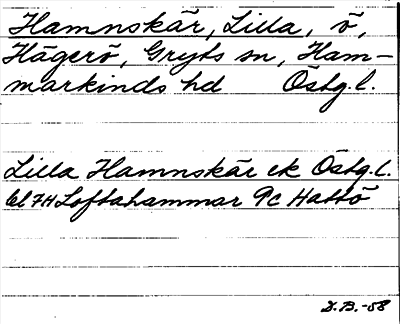 Hamnskär, Lilla, ö,
Hägerö, Gryts sn, Ham-
markinds hd Östg.l.
Lilla Hamnskär ek Östg.l.
bl 7H Loftahammar 9c Hattö
D.B.-58